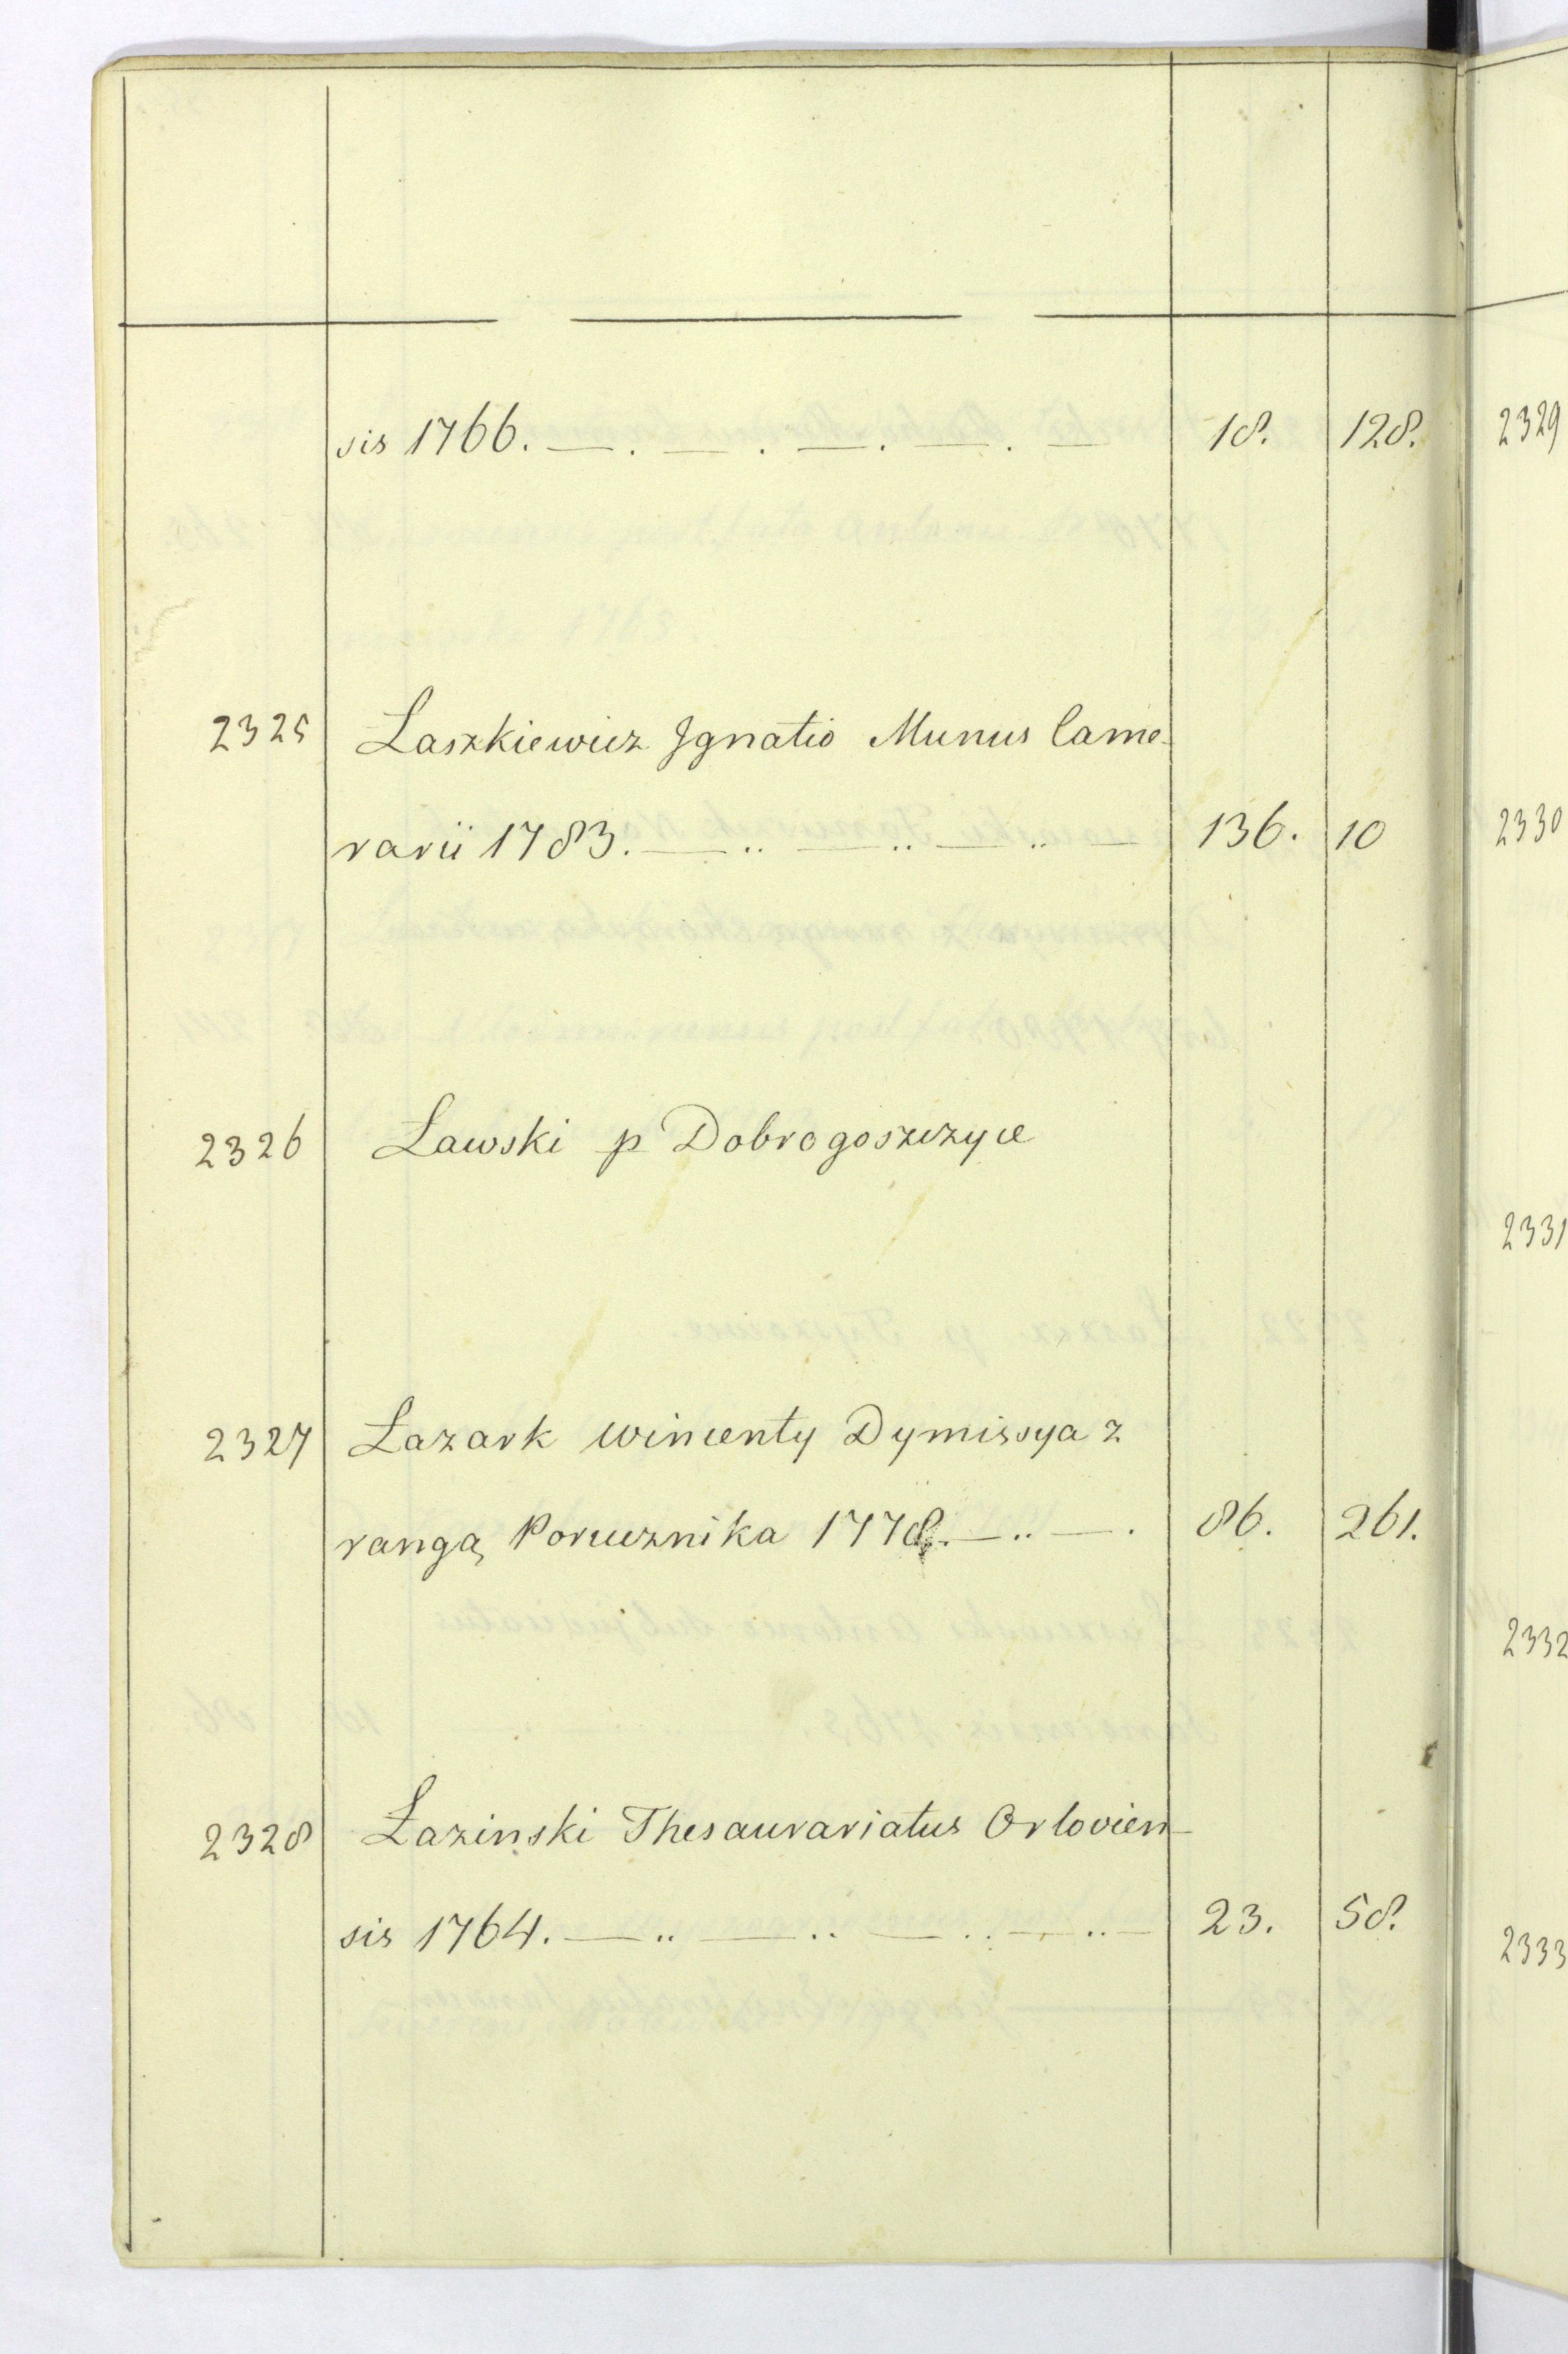 sis 1766. — . — . — . — . — 18. 128.
2325 Laszkiewicz Ignatio Munus Came-
rarii 1783. — .. — .. — .. — 136. 10
2326 Ławski p Dobrogoszczyce
2327 Łazark Wincenty Dymissya z
rangą Porucznika 1778. — .. — . 86. 261.
2328 Łazinski Thesaurariatus Orlovien-
sis 1764. — .. — .. — .. — .. — 23. 58.
2329
2330
2331
2332
2333